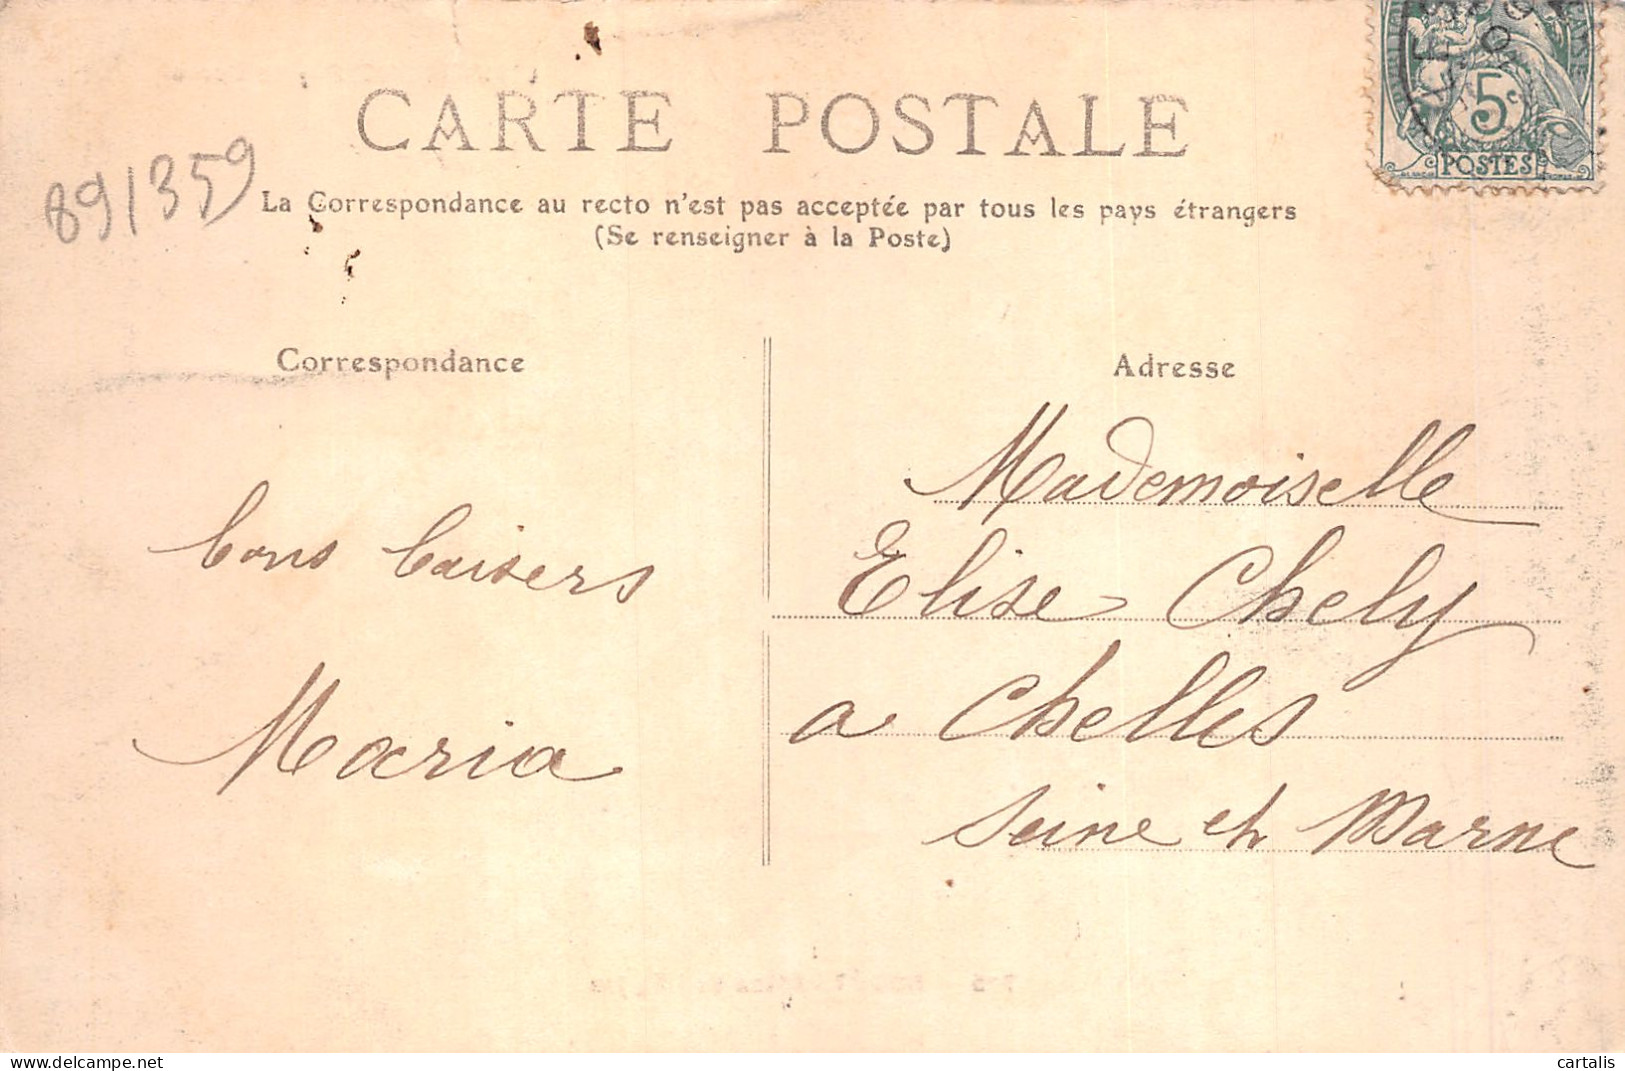 CARTE POSTALE
5c
POSTES
891359
La Correspondance au recto n'est pas acceptée par tous les pays étrangers
(Se renseigner à la Poste)
Correspondance
Adresse
bons baisers
Maria
Mademoiselle
Elise Chely
a Chelles
Seine et Marne
www.delcampe.net
cartalis